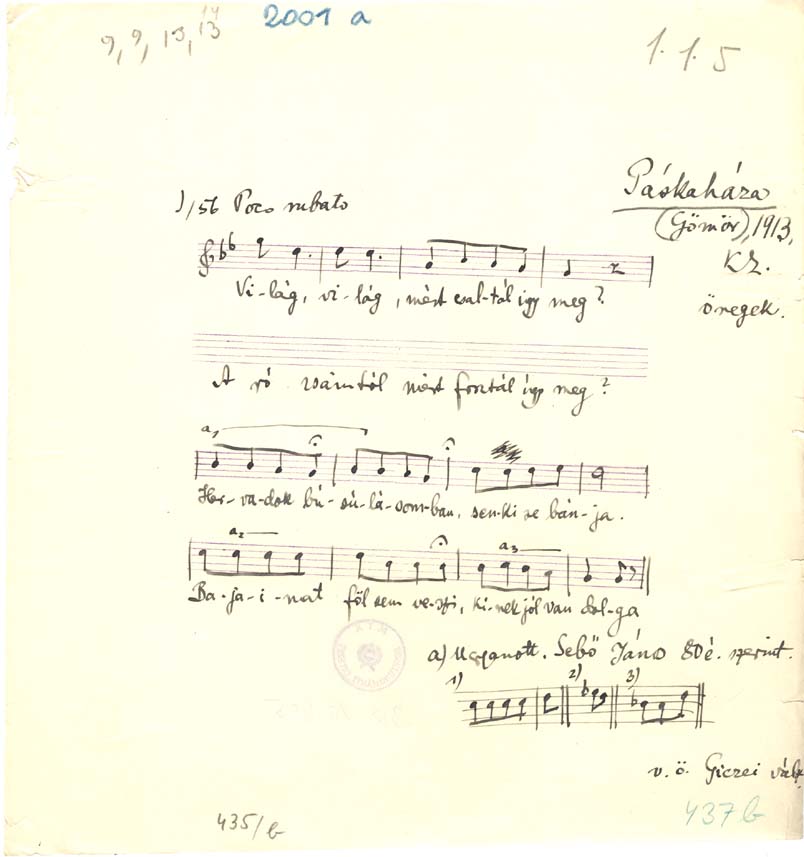 2001 a
9, 9, 13, 13
14
1. 1. 5
Páskaháza
(Gömör), 1913,
KZ.
öregek.
I/56 Poco rubato
Vi-lág, vi-lág, mért csal-tál így meg?
A ró zsámtól mért fosztál így meg?
a,
Her-va-dok bú-sú-lá-som-ban, sen-ki se bán-ja.
a2
a3
Ba-ja-i-nat föl sem ve-szi, ki-nek jól van dol-ga
a) Ugyanott. Sebő János 80 é. szerint.
1) 2) 3)
v. ö. Giczei
435/b
437 b